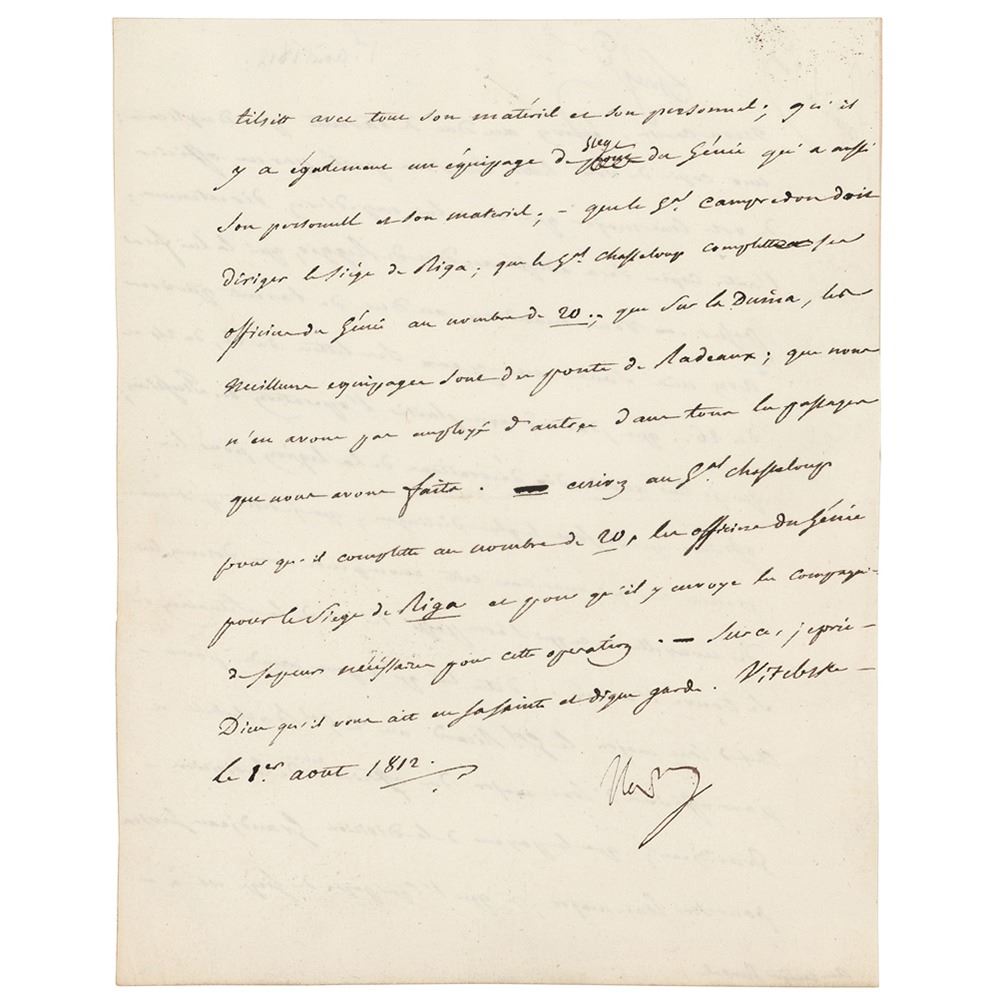 tilsitt avec tout son matériel et son personnel; qu'il
y a également un équipage de siege du Génie qui a aussi
son personnel et son materiel; – que le Gal. Campredon doit
diriger le siége de Riga; que le Gal. chasseloup complette ses
officiers du Génie au nombre de 20.; que sur la Duina, les
meilleurs equipages sont des ponts de Radeaux; que nous
n'en avons pas employé d'autres dans tous les passages
que nous avons faits. — ecrivez au Gal. chasseloup
pour qu'il complette au nombre de 20, les officiers du Génie
pour le siege de Riga et pour qu'il y envoye les compagnies
de sapeurs nécessaires pour cette operation. — Sur ce, je prie
Dieu qu'il vous ait en sa sainte et digne garde. Vitebsk –
le 1er. aout 1812.